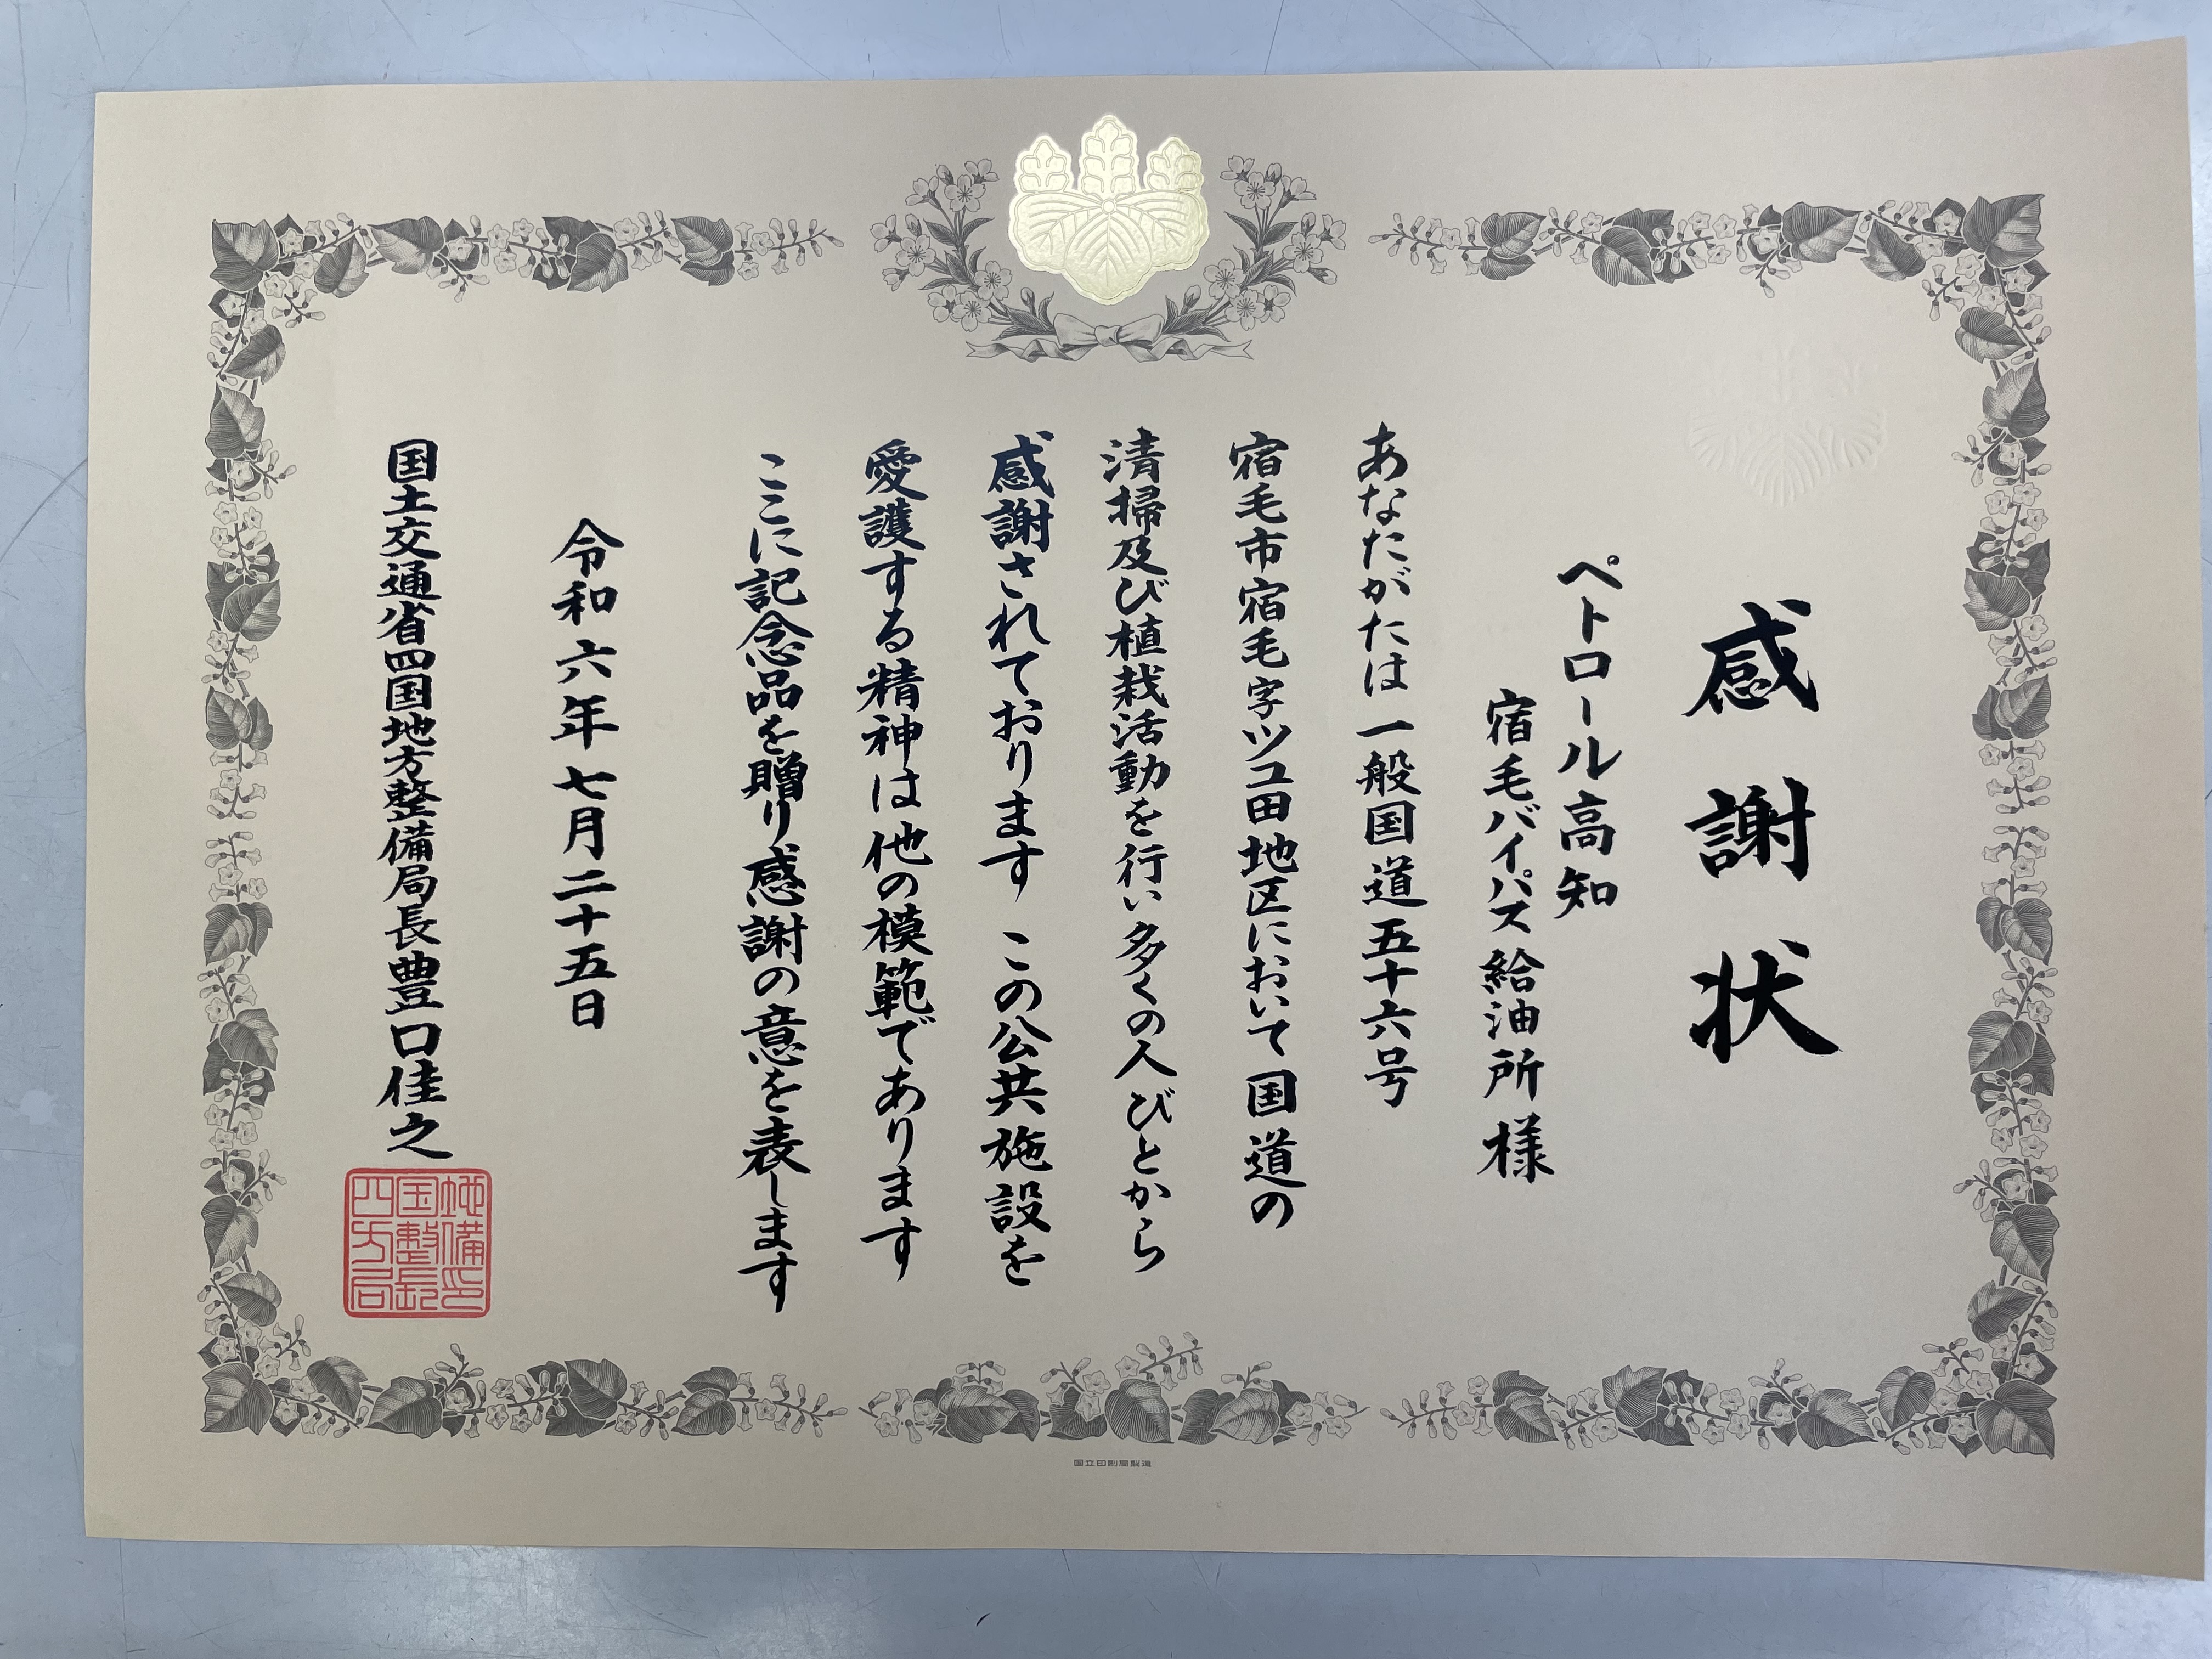 感謝状
ペトロール高知
宿毛バイパス給油所様
あなたがたは一般国道五十六号
宿毛市宿毛字ツユ田地区において国道の
清掃及び植栽活動を行い多くの人びとから
感謝されております この公共施設を
愛護する精神は他の模範であります
ここに記念品を贈り感謝の意を表します
令和六年七月二十五日
国土交通省四国地方整備局長豊口佳之
四国地
方整備
局長印
国立印刷局製造